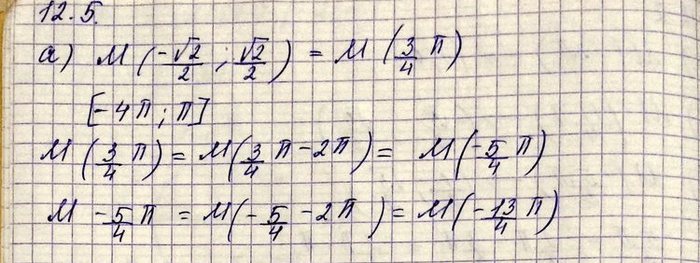 12.5.
а) М (-√2/2 ; √2/2) = М (3/4 π)
[-4π; π]
М (3/4 π) = М(3/4 π - 2π) = М(-5/4 π)
М -5/4 π = М(-5/4 - 2π) = М(-13/4 π)